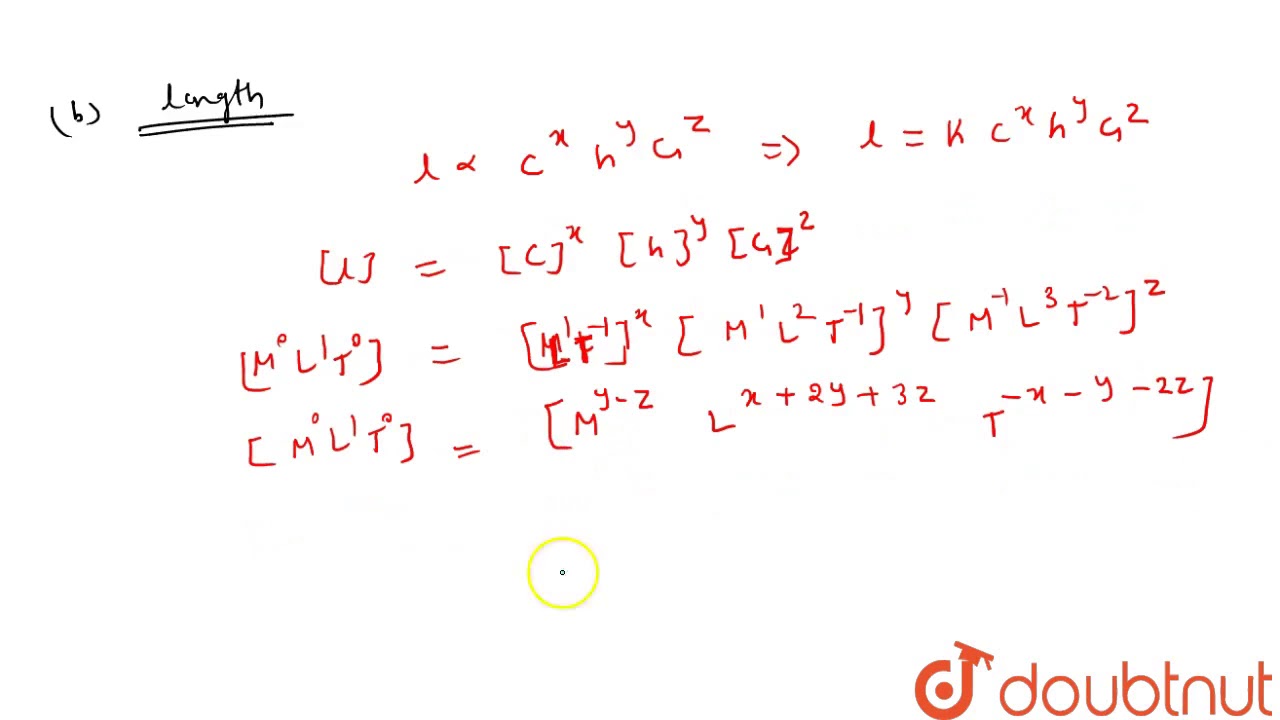 (b) length
l ∝ C^x h^y G^z ⇒ l = K C^x h^y G^z
[l] = [C]^x [h]^y [G]^z
[M^0 L^1 T^0] = [L^1 T^-1]^x [M^1 L^2 T^-1]^y [M^-1 L^3 T^-2]^z
[M^0 L^1 T^0] = [M^y-z L^x+2y+3z T^-x-y-2z]
doubtnut